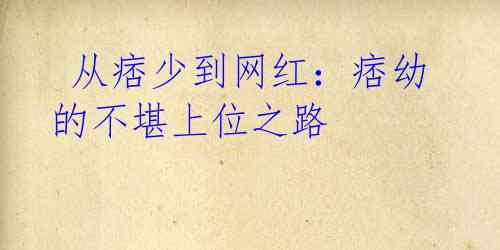 从痞少到网红：痞幼
的不堪上位之路